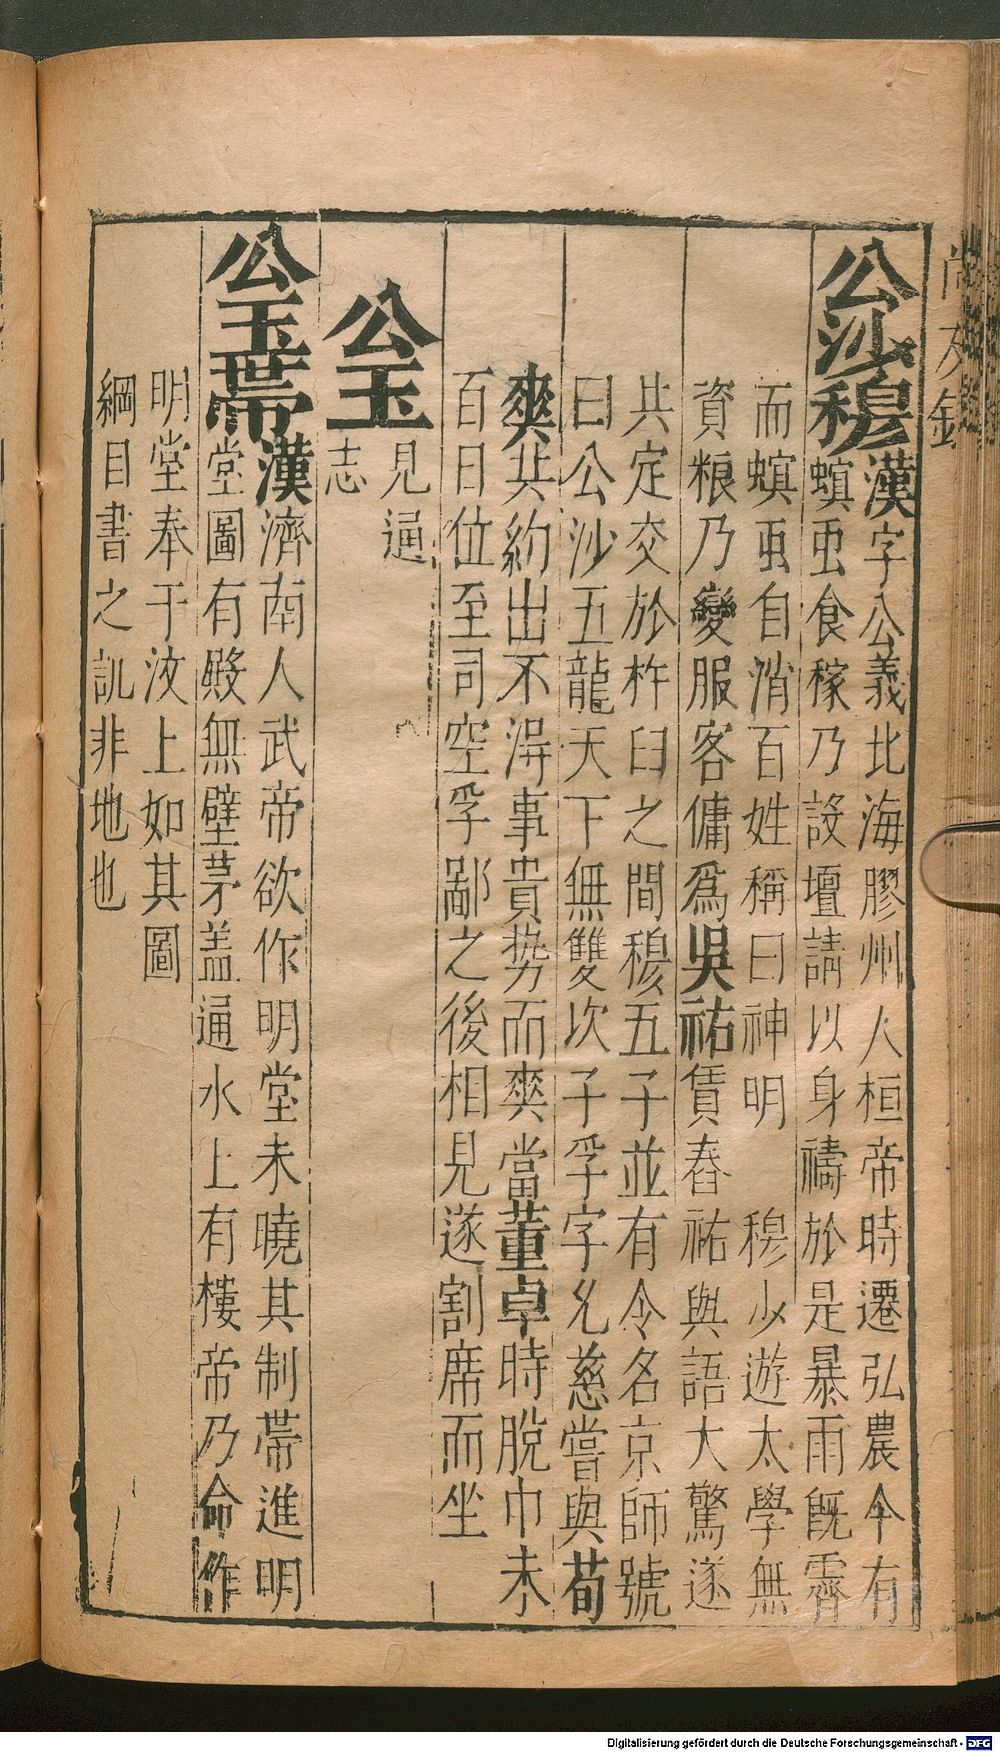 尚友錄
公沙穆漢字公義北海膠州人桓帝時遷弘農令有
螟虫食稼乃設壇請以身禱於是暴雨旣霽
而螟虫自消百姓稱曰神明 穆少遊太學無
資粮乃變服客傭爲吳祐賃舂祐與語大驚遂
共定交於杵臼之間穆五子並有令名京師號
曰公沙五龍天下無雙次子孚字允慈嘗與荀
爽共約出不淂事貴势而爽當董卓時脫巾未
百日位至司空孚鄙之後相見遂割席而坐
公玉 見通
志
公玉帶漢濟南人武帝欲作明堂未曉其制帶進明
堂圖有殿無壁茅盖通水上有樓帝乃命作
明堂奉于汶上如其圖
綱目書之訊非地也
Digitalisierung gefördert durch die Deutsche Forschungsgemeinschaft - DFG